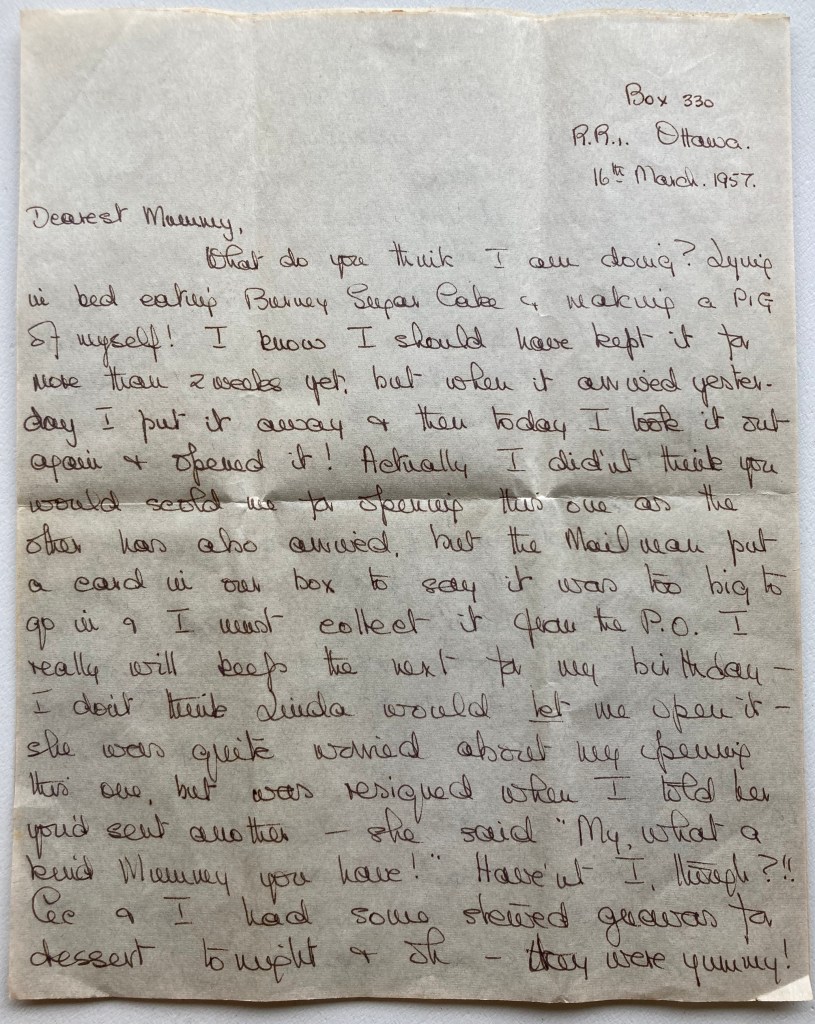 Box 330
R.R.1. Ottawa.
16th March. 1957.
Dearest Mummy,
What do you think I am doing? Lying
in bed eating Burney Sugar Cake & making a PIG
of myself! I know I should have kept it for
more than 2 weeks yet, but when it arrived yester-
day I put it away & then today I took it out
again & opened it! Actually I did'nt think you
would scold me for opening this one as the
other has also arrived, but the Mail man put
a card in our box to say it was too big to
go in & I must collect it from the P.O. I
really will keep the next for my birthday -
I don't think Linda would let me open it -
she was quite worried about my opening
this one, but was resigned when I told her
you'd sent another - she said "My, what a
kind Mummy you have!" Have'nt I, though?!!
Cec & I had some stewed guavas for
dessert tonight & Oh - they were yummy!